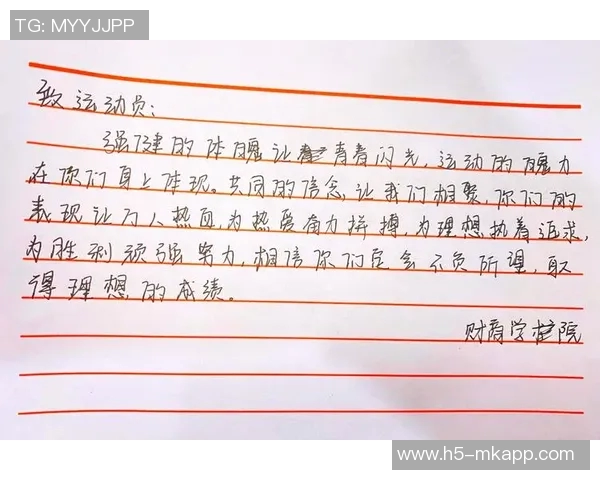 TG: MYYJJPP
致运动员:
强健的体魄让青春闪光,运动的魄力
在你们身上体现。共同的信念,让我们相聚,你们的
表现让万人热血,为热爱奋力拼搏,为理想执着追求,
为胜利顽强努力,相信你们定会不负所望,取
得理想的成绩。
财商学院
www.h5-mkapp.com